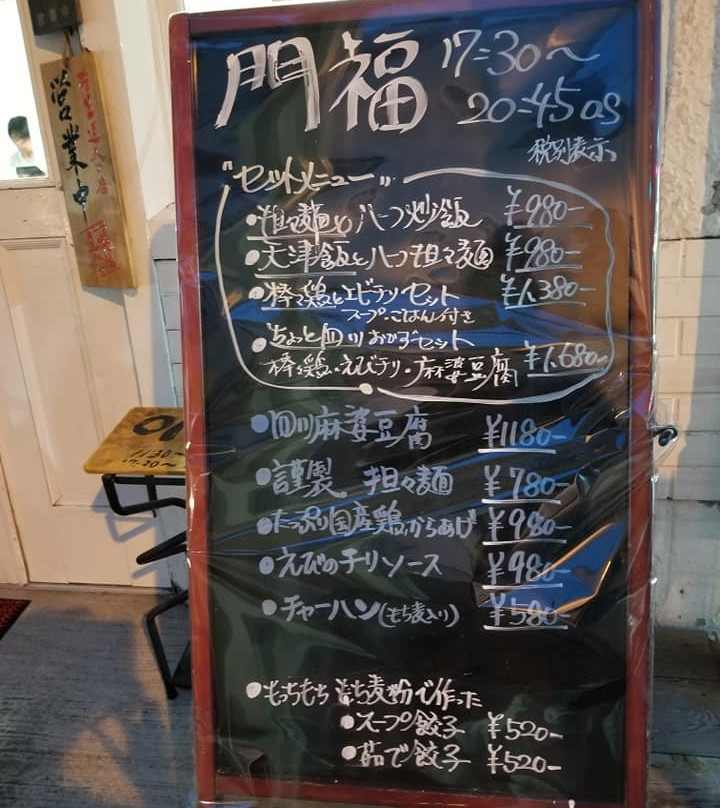 門福 17:30〜
20:45 OS
税別表示
"セットメニュー"
・担々麺とハーフ炒飯 ¥980-
・天津飯とハーフ担々麺 ¥980-
・棒々鶏とエビチリセット ¥1,380-
スープ・ごはん付き
・ちょっと四川おかずセット
棒々鶏・えびチリ・麻婆豆腐 ¥1,680-
・四川麻婆豆腐 ¥1180-
・謹製 担々麺 ¥780-
・たっぷり国産鶏からあげ ¥980-
・えびのチリソース ¥980-
・チャーハン(もち麦入り) ¥580-
・もっちもち もち麦粉で作った
・スープ餃子 ¥520-
・茹で餃子 ¥520-
営業中